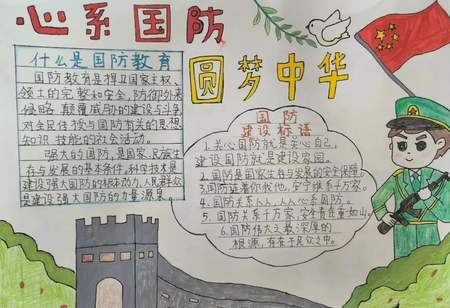 心系国防
圆梦中华
什么是国防教育
国防教育是捍卫国家主权、
领土的完整和安全,防御外来
侵略 颠覆威胁的建设与斗争
对全民传授与国防有关的思想
知识 技能的社会活动。
强大的国防,是国家、民族生
存与发展的基本条件,科学技术是
建设强大国防的根本动力,人民群众
是建设强大国防的力量源泉。
国防
建设标语
1.关心国防就是关心自己,
建设国防就是建设家园。
2.国防是国家生存与发展的安全保障
3.国防连着你我他,安宁维系千万家。
4.国防关系人人,人人心系国防。
5.国防关系千万家,安全责任重如山。
6.国防伟大之最深厚的
根源,存在于民众之中。